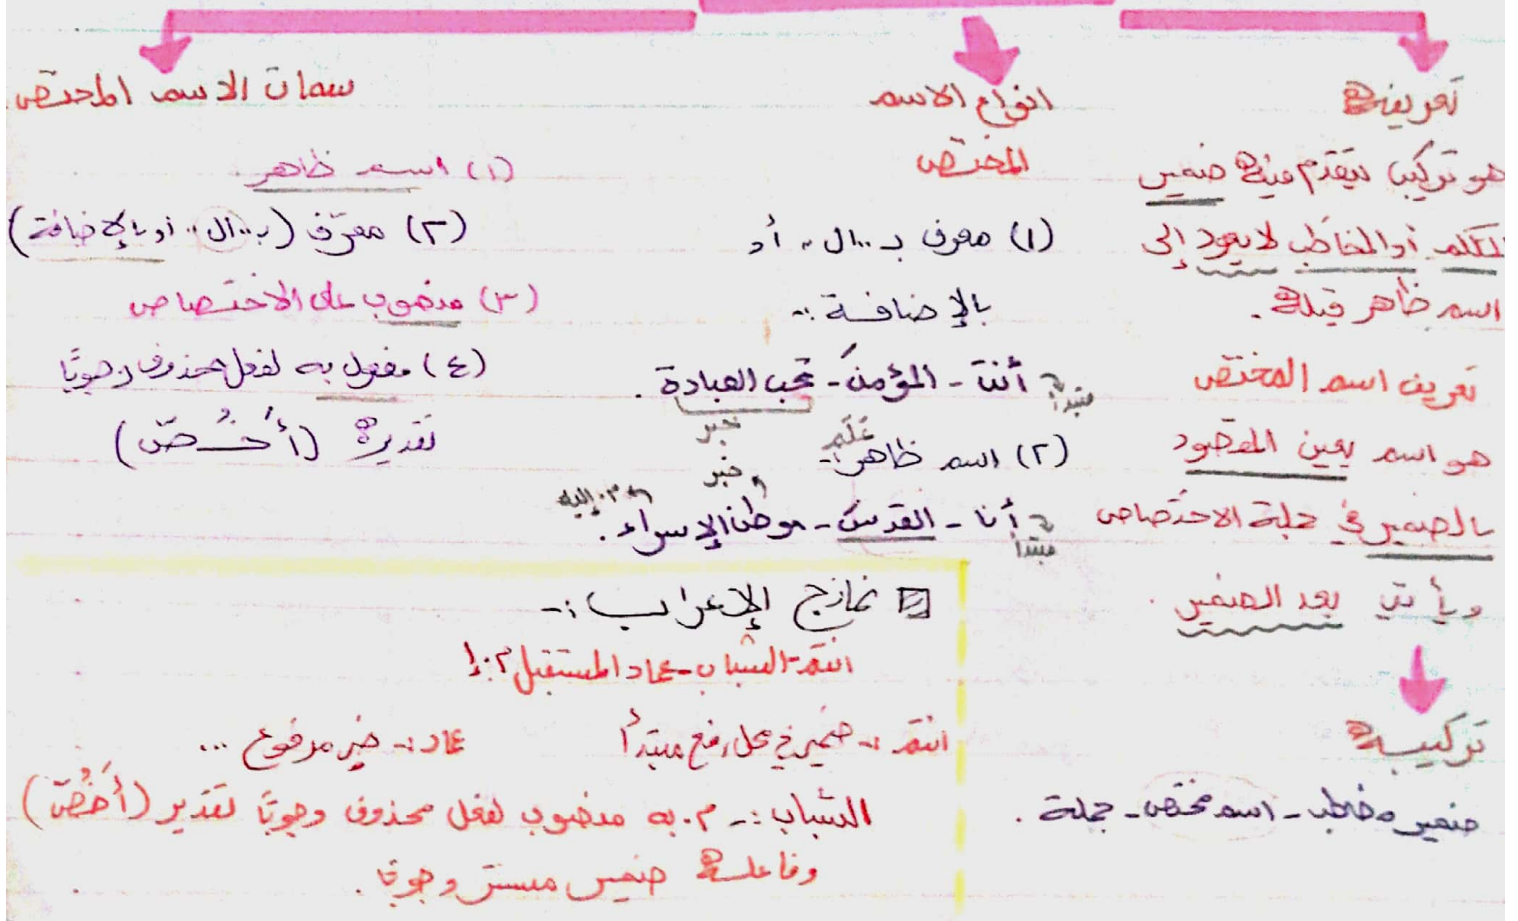 تعريفه
هو تركيب يتقدم فيه ضمير
المتكلم أو المخاطب لا يعود إلى
اسم ظاهر قبله .
تعريف اسم المختص
هو اسم يعين المقصود
بالضمير في جملة الاختصاص
ويأتي بعد الضمير .
تركيبه
ضمير مخاطب - اسم مختص - جملة .
انواع الاسم
المختص
(١) معرف بـ "ال" أو
بالإضافة :-
أنتَ - المؤمنَ - تحب العبادة .
مبتدأ
خبر
(٢) اسم ظاهر :-
عَلَم
خبر
م. إليه
أنا - القدسَ - موطن الإسراء .
مبتدأ
سمات الاسم المختص
(١) اسم ظاهر
(٢) معرّف (بـ "ال" أو بالإضافة)
(٣) منصوب على الاختصاص
(٤) مفعول به لفعل محذوف وجوبًا
تقديره (أَخُصّ)
نماذج الإعراب :-
انتم - الشباب - عماد المستقبل م.إ
انتم :- ضمير في محل رفع مبتدأ
عماد :- خبر مرفوع ...
الشباب :- م. به منصوب لفعل محذوف وجوبًا تقدير (أَخُصّ)
وفاعله ضمير مستتر وجوبًا .